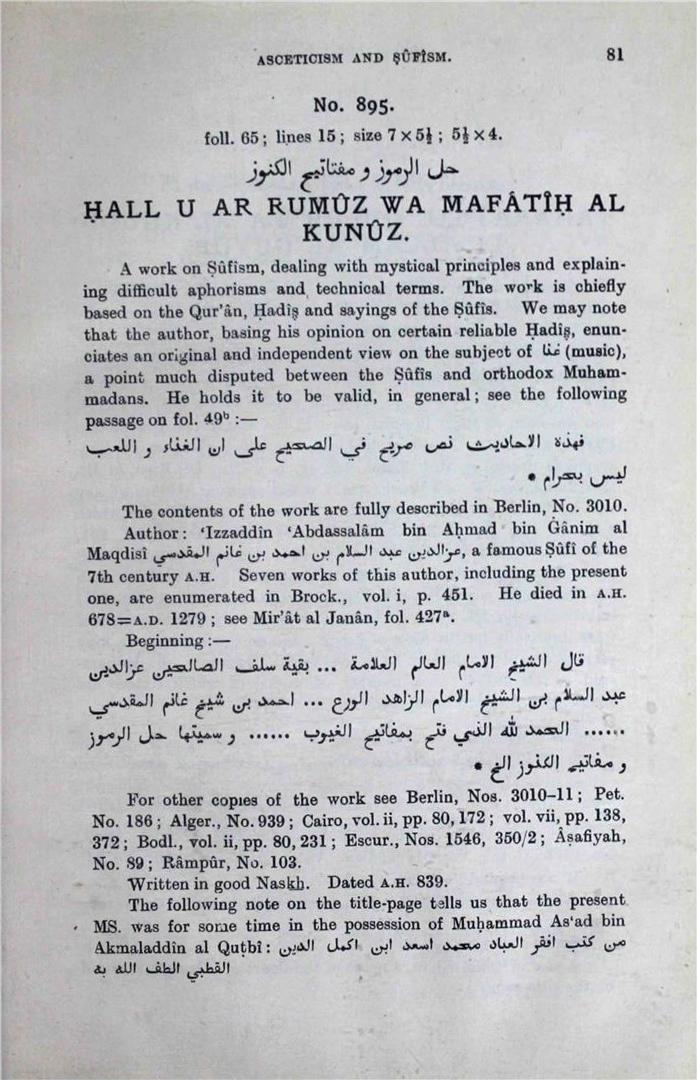 ASCETICISM AND ṢÛFÎSM. 81
No. 895.
foll. 65; lines 15; size 7 × 5½; 5½ × 4.
حل الرموز و مفتاتيح الكنوز
ḤALL U AR RUMÛZ WA MAFÂTÎḤ AL
KUNÛZ.
A work on Ṣûfism, dealing with mystical principles and explain-
ing difficult aphorisms and technical terms. The work is chiefly
based on the Qur'ân, Ḥadîs̱ and sayings of the Ṣûfîs. We may note
that the author, basing his opinion on certain reliable Ḥadîs̱, enun-
ciates an original and independent view on the subject of غنا (music),
a point much disputed between the Ṣûfîs and orthodox Muham-
madans. He holds it to be valid, in general; see the following
passage on fol. 49ᵇ :—
فهذه الاحاديث نص صريح في الصحيح على ان الغناء و اللعب
ليس بحرام •
The contents of the work are fully described in Berlin, No. 3010.
Author: ‘Izzaddîn ‘Abdassalâm bin Aḥmad bin Ġânim al
Maqdisî عزالدين عبد السلام بن احمد بن غانم المقدسي, a famous Ṣûfî of the
7th century A.H. Seven works of this author, including the present
one, are enumerated in Brock., vol. i, p. 451. He died in A.H.
678=A.D. 1279; see Mir’ât al Janân, fol. 427ᵃ.
Beginning :—
قال الشيخ الامام العالم العلامة ... بقية سلف الصالحين عزالدين
عبد السلام بن الشيخ الامام الزاهد الورع ... احمد بن شيخ غانم المقدسي
...... الحمد لله الذي فتح بمفاتيح الغيوب ...... و سميتها حل الرموز
و مفاتيح الكنوز الخ •
For other copies of the work see Berlin, Nos. 3010–11; Pet.
No. 186; Alger., No. 939; Cairo, vol. ii, pp. 80, 172; vol. vii, pp. 138,
372; Bodl., vol. ii, pp. 80, 231; Escur., Nos. 1546, 350/2; Âṣafiyah,
No. 89; Râmpûr, No. 103.
Written in good Naskh. Dated A.H. 839.
The following note on the title-page tells us that the present
MS. was for some time in the possession of Muḥammad As‘ad bin
Akmaladdîn al Quṭbî: من كتب افقر العباد محمد اسعد ابن اكمل الدين
القطبي الطف الله به